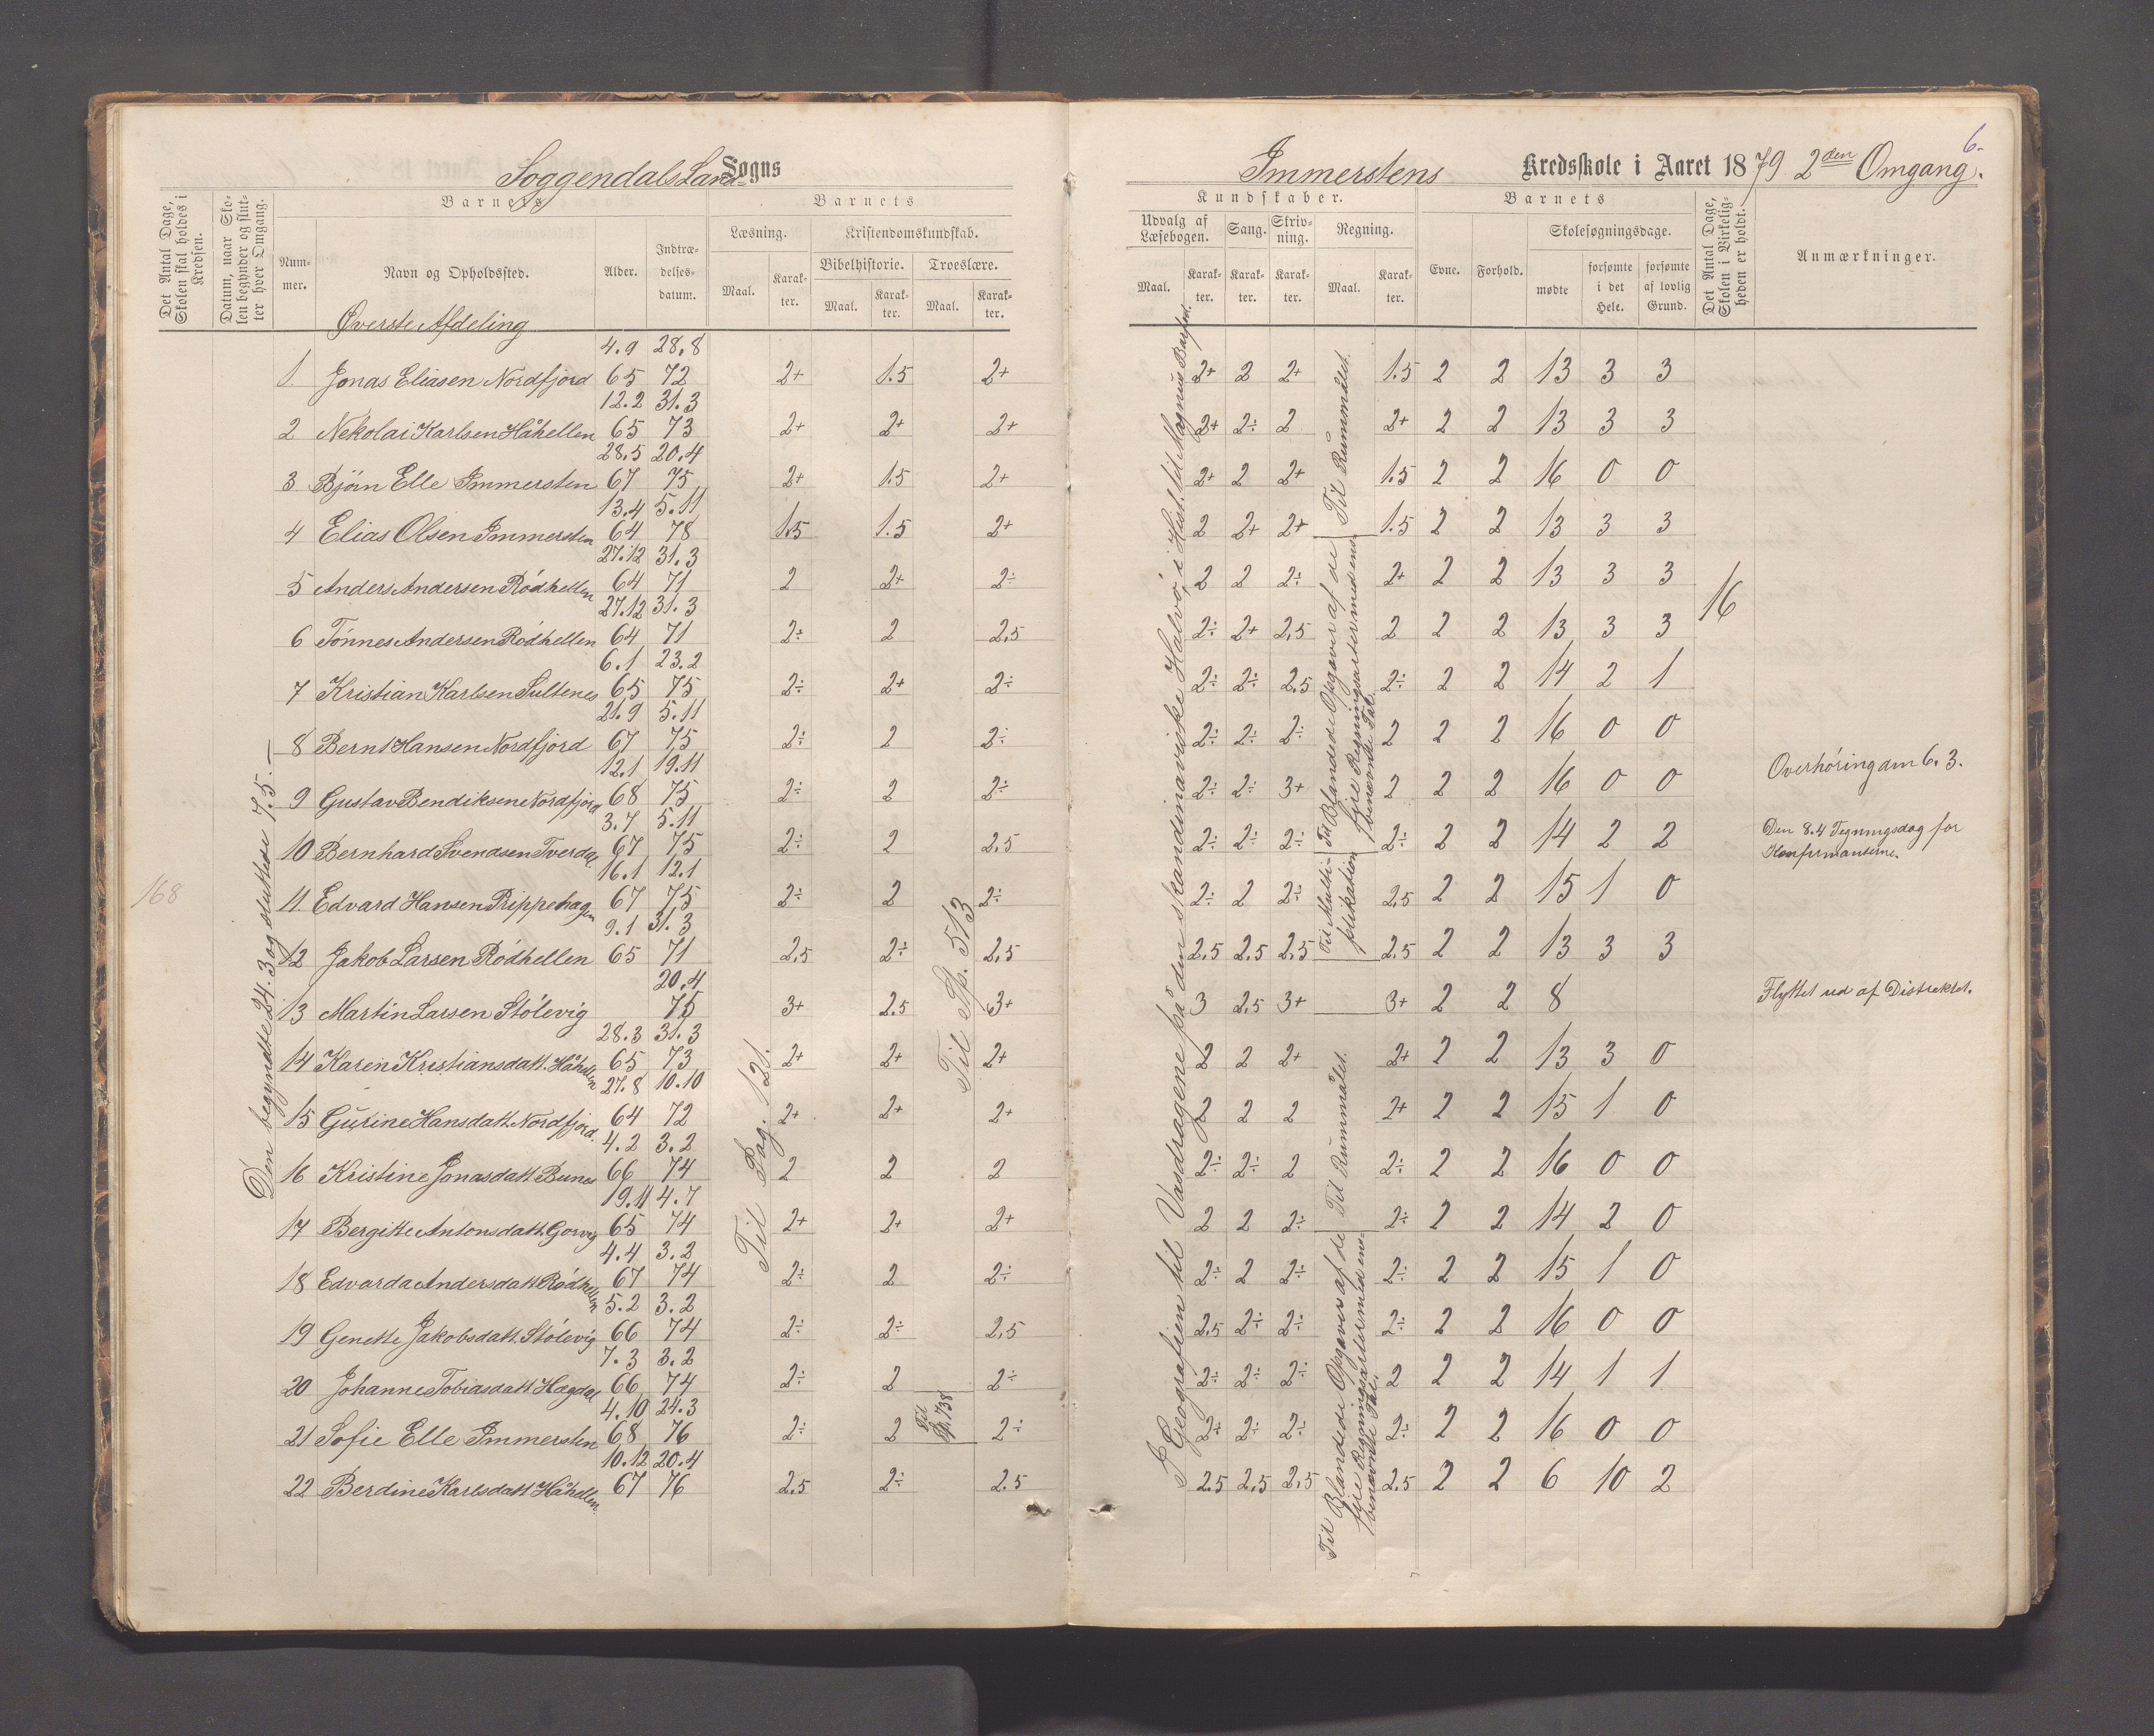 Soggendals Land Sogns
Det Antal Dage, Skolen skal holdes i Kredsen.
Datum, naar Skolen begynder og slutter hver Omgang.
Barnets
Barnets
Nummer.
Navn og Opholdssted.
Alder.
Indtrædelsesdatum.
Læsning.
Kristendomskundskab.
Bibelhistorie.
Troeslære.
Maal.
Karakter.
Maal.
Karakter.
Maal.
Karakter.
Øverste Afdeling
168
Den begyndte 24.3 og sluttede 7.5.—
Til Pag. 121.
Til Sp. 513
Til Sp. 738
1. Jonas Eliasen Nordfjord 4.9 65 28.8 72 2+ 1.5 2+
2 Nekolai Karlsen Håhellen 12.2 65 31.3 73 2+ 2+ 2+
3 Bjørn Elle Immersten 28.5 67 20.4 75 2+ 1.5 2+
4 Elias Olsen Immersten 13.4 64 5.11 78 1.5 1.5 2+
5 Anders Andersen Rödhellen 27.12 64 31.3 71 2 2+ 2÷
6 Tönnes Andersen Rödhellen 27.12 64 31.3 71 2÷ 2 2,5
7 Kristian Karlsen Sultenes 6.1 65 23.2 75 2÷ 2+ 2÷
8 Bernt Hansen Nordfjord 21.9 67 5.11 75 2÷ 2 2÷
9 Gustav Bendiksen Nordfjord 12.1 68 19.11 75 2÷ 2 2÷
10 Bernhard Svendsen Tverdal 3.7 67 5.11 75 2÷ 2 2,5
11. Edvard Hansen Prippehagen 16.1 67 12.1 75 2÷ 2 2÷
12 Jakob Larsen Rödhellen 9.1 65 31.3 71 2,5 2÷ 2,5
13 Martin Larsen Stölevig 20.4 75 3+ 2.5 3+
14 Karen Kristiansdatt. Håhellen 28.3 65 31.3 73 2+ 2+ 2+
15 Gurine Hansdatt. Nordfjord. 27.8 64 10.10 72 2+ 2+ 2+
16 Kristine Jonasdatt Bunes 4.2 66 3.2 74 2 2 2
17 Bergitte Antonsdatt. Gorvig 19.11 65 4.7 74 2+ 2+ 2+
18 Edvarda Andersdatt Rödhellen 4.4 67 3.2 74 2÷ 2 2÷
19 Genette Jakobsdatt. Stölevig 5.2 66 3.2 74 2÷ 2÷ 2,5
20 Johanne Tobiasdatt Hægdal 7.3 66 3.2 74 2÷ 2 2÷
21 Sofie Elle Immersten 4.10 68 24.3 76 2÷ 2 2÷
22 Berdine Karlsdatt Håhellen 10.12 67 20.4 76 2,5 2÷ 2.5
6.
Immerstens Kredsskole i Aaret 1879 2den Omgang.
Kundskaber.
Barnets
Udvalg af Læsebogen.
Sang.
Skrivning.
Regning.
Evne.
Forhold.
Skolesøgningsdage.
Det Antal Dage, Skolen i Virkeligheden er holdt.
Anmærkninger.
Maal.
Karakter.
Karakter.
Karakter.
Maal.
Karakter.
mødte
forsømte i det Hele.
forsømte af lovlig Grund.
I Geografien til Vasdragene på den skandinaviske Halvø, i Hist. til Magnus Barfod.
Til Rummålet.
Til Blandede Opgaver af de fire Regningsarter med ensbenævnte Tal.
Til Multiplikation
Til Rummålet.
Til Blandede Opgaver af de fire Regningsarter med ensbenævnte Tal.
2+ 2 2+ 1.5 2 2 13 3 3
2+ 2÷ 2 2+ 2 2 13 3 3
2+ 2 2+ 1.5 2 2 16 0 0
2 2+ 2+ 1.5 2 2 13 3 3
2 2 2÷ 2+ 2 2 13 3 3
16
2÷ 2+ 2,5 2 2 2 13 3 3
2÷ 2÷ 2,5 2÷ 2 2 14 2 1
2÷ 2÷ 2÷ 2 2 2 16 0 0
2÷ 2÷ 3+ 2 2 2 16 0 0 Overhöring dm 6.3.
2÷ 2÷ 2÷ 2÷ 2 2 14 2 2 Den 8.4 Tegningsdag for Konfirmanterne.
2÷ 2 2÷ 2,5 2 2 15 1 0
2,5 2,5 2,5 2.5 2 2 13 3 3
3 2,5 3+ 3+ 2 2 8 Flyttet ud af Distriktet.
2 2 2+ 2+ 2 2 13 3 0
2 2 2 2+ 2 2 15 1 0
2÷ 2÷ 2 2÷ 2 2 16 0 0
2 2 2÷ 2÷ 2 2 14 2 0
2÷ 2 2÷ 2÷ 2 2 15 1 0
2,5 2÷ 2÷ 2÷ 2 2 16 0 0
2÷ 2÷ 2÷ 2 2 2 14 1 1
2÷ 2÷ 2÷ 2÷ 2 2 16 0 0
2.5 2,5 2,5 2,5 2 2 6 10 2